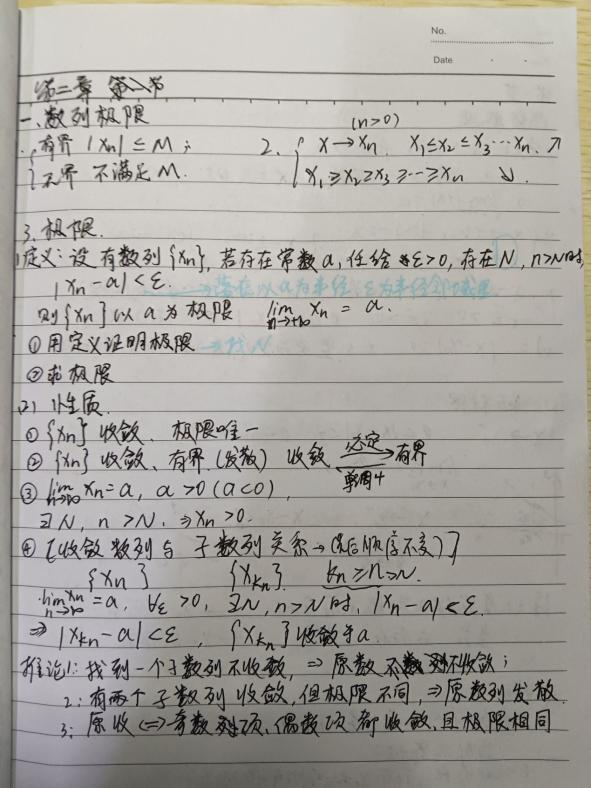 No.
Date
第二章 第一节
一、数列极限
1. 有界 |xn| ≤ M; 2. x → xn (n>0) x1≤x2≤x3…xn. ↗
无界 不满足M. x1≥x2≥x3≥…≥xn ↘.
3. 极限.
1)定义: 设有数列{xn}, 若存在常数a, 任给ε>0, 存在N, n>N时,
|xn-a|<ε. → 落在以a为半径, ε为半径邻域里
则{xn}以a为极限 lim n→+∞ xn = a.
① 用定义证明极限 → 找N
② 求极限
(2) 性质.
① {xn} 收敛、极限唯一
② {xn} 收敛、有界.(发散) 收敛 必定 有界
③ lim n→∞ xn=a, a>0 (a<0),
∃N, n>N. ⇒ xn>0.
④ [收敛数列与子数列关系→(先后顺序不变)]
{xn} {xkn}. kn≥n>N.
lim n→∞ xn=a, ∀ε>0, ∃N, n>N时, |xn-a|<ε.
⇒ |xkn-a|<ε, {xkn}收敛于a.
推论1: 找到一个子数列不收敛, ⇒ 原数列不收敛;
2: 有两个子数列收敛, 但极限不同, ⇒ 原数列发散.
3: 原收 ⇔ 奇数列项、偶数项都收敛, 且极限相同